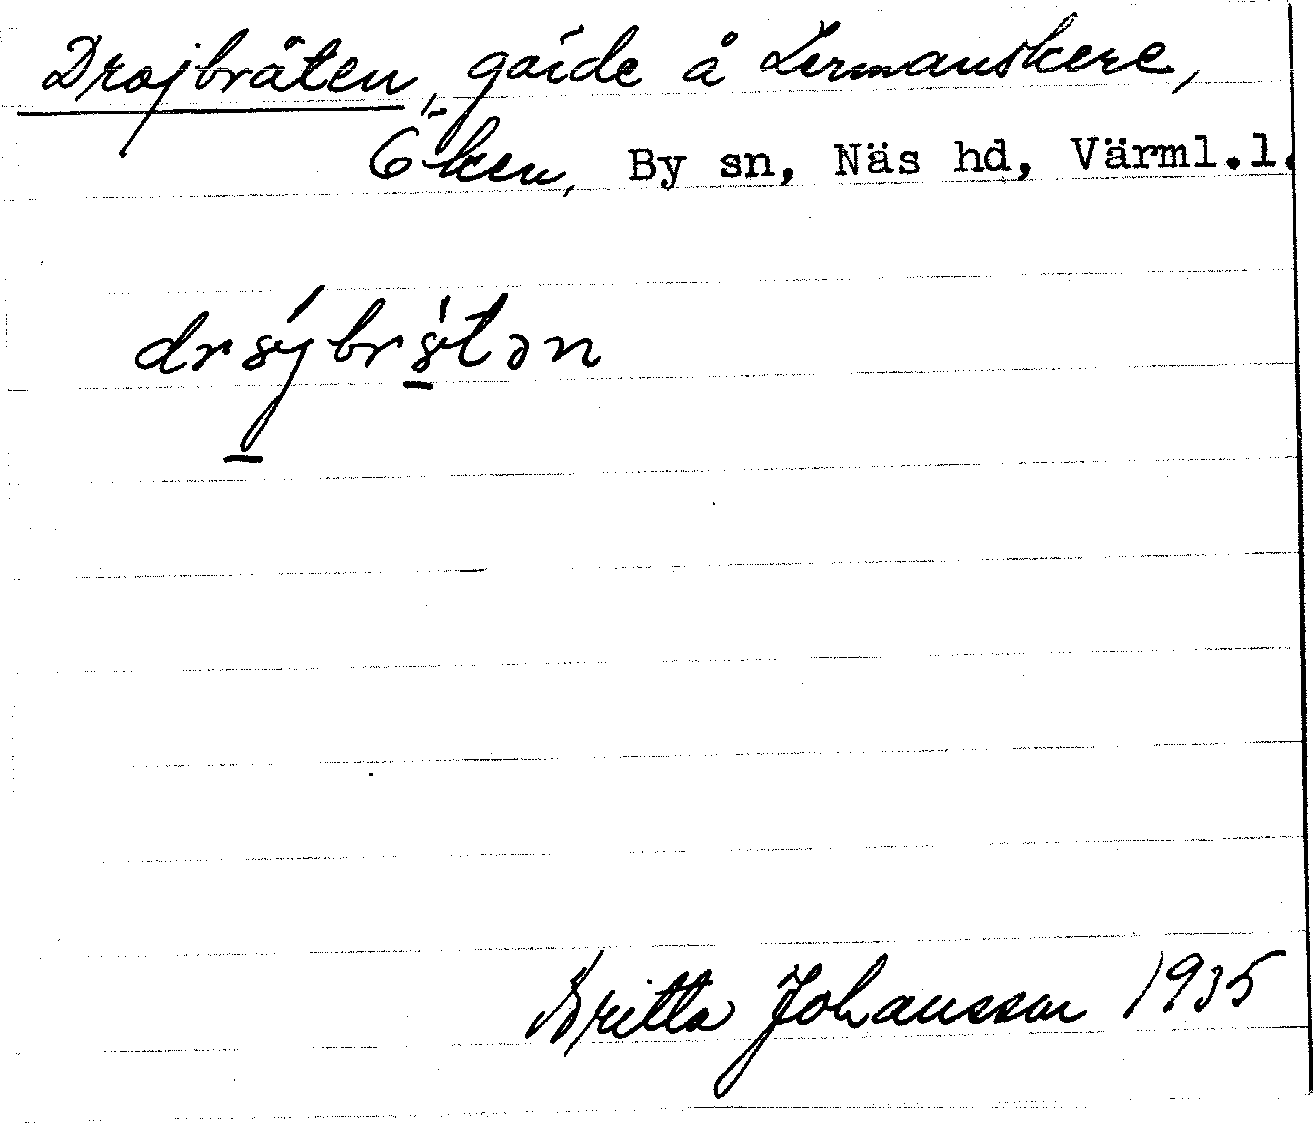 Drojbråten, gärde å Lermanskere,
Öken, By sn, Näs hd, Värml.l.
Britta Johansson 1935